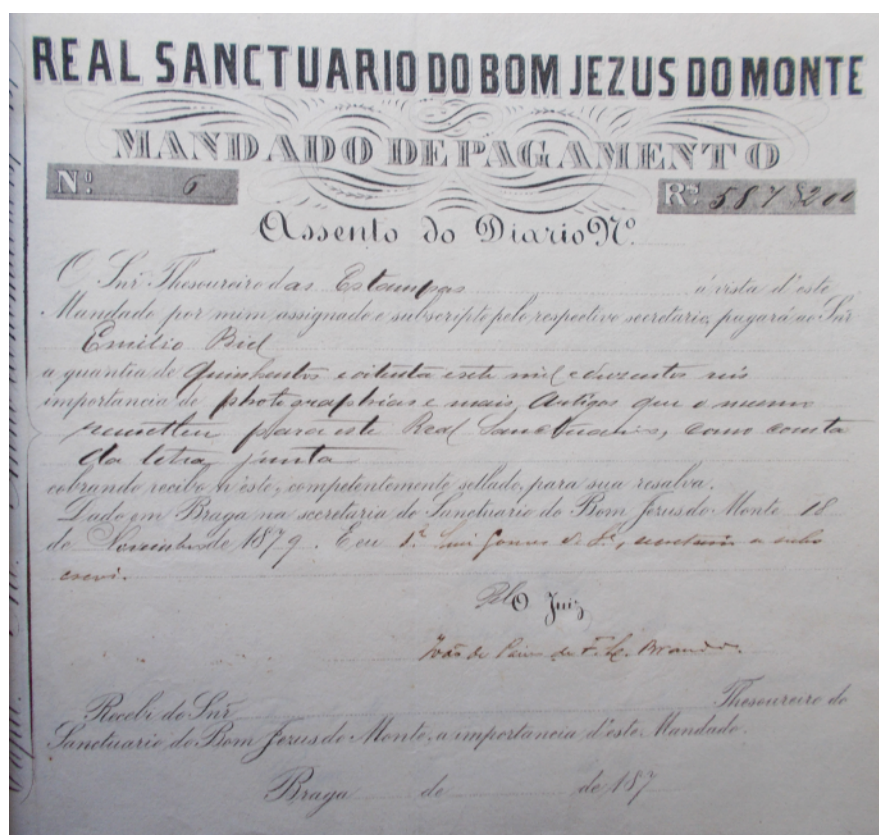 REAL SANCTUARIO DO BOM JEZUS DO MONTE
MANDADO DE PAGAMENTO
Nº 6 Rs 587$200
Assento do Diario Nº
O Snr. Thesoureiro das Estampas á vista d'este
Mandado por mim assignado e subscripto pelo respectivo secretario, pagará ao Snr
Emilio Biel
a quantia de quinhentos e oitenta e sete mil e duzentos reis
importancia de photographias e mais artigos que o mesmo
remetteu para este Real Sanctuario, como consta
da letra junta
cobrando recibo n'este, competentemente sellado, para sua resalva.
Dado em Braga na secretaria do Sanctuario do Bom Jezus do Monte 18
de Novembro de 1879. E eu Luiz Gomes secretario o subs
crevi.
Pelo O Juiz
João de Paiva de F. L. Brandão.
Recebi do Snr. Thesoureiro do
Sanctuario do Bom Jezus do Monte, a importancia d'este Mandado.
Braga de de 187